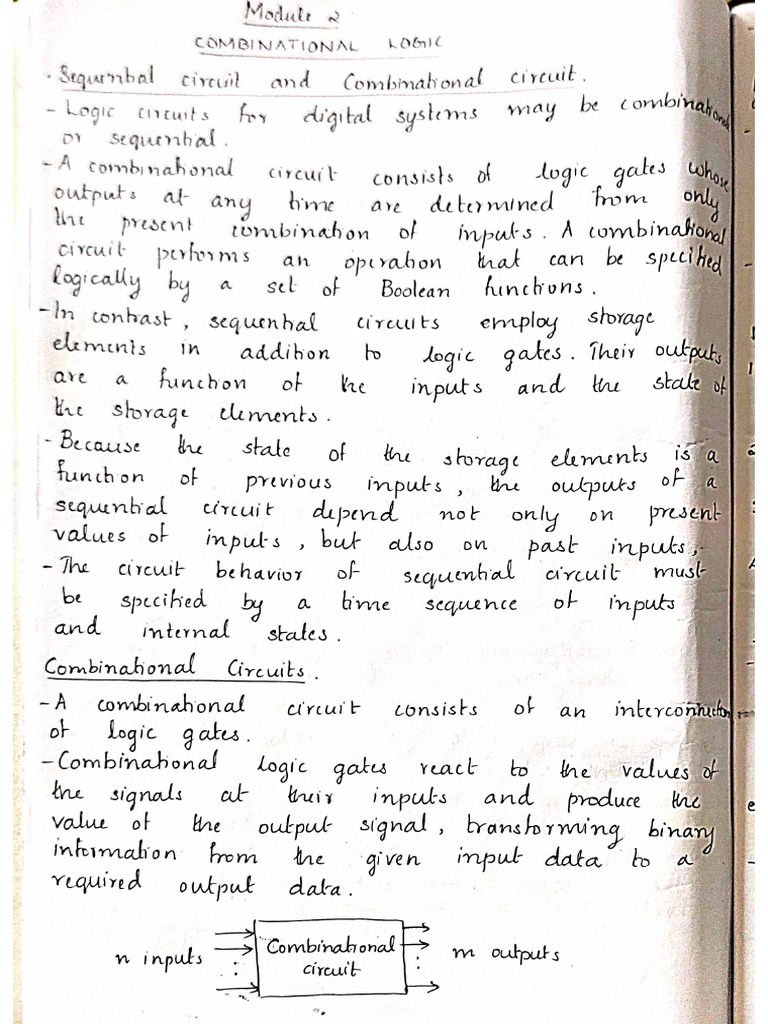 Module 2
COMBINATIONAL LOGIC
· Sequential circuit and Combinational circuit.
- Logic circuits for digital systems may be combinational
or sequential.
- A combinational circuit consists of logic gates whose
outputs at any time are determined from only
the present combination of inputs. A combinational
circuit performs an operation that can be specified
logically by a set of Boolean functions.
- In contrast, sequential circuits employ storage
elements in addition to logic gates. Their outputs
are a function of the inputs and the state of
the storage elements.
- Because the state of the storage elements is a
function of previous inputs, the outputs of a
sequential circuit depend not only on present
values of inputs, but also on past inputs,
- The circuit behavior of sequential circuit must
be specified by a time sequence of inputs
and internal states.
Combinational Circuits.
- A combinational circuit consists of an interconnection
of logic gates.
- Combinational logic gates react to the values of
the signals at their inputs and produce the
value of the output signal, transforming binary
information from the given input data to a
required output data.
n inputs
Combinational
circuit
m outputs